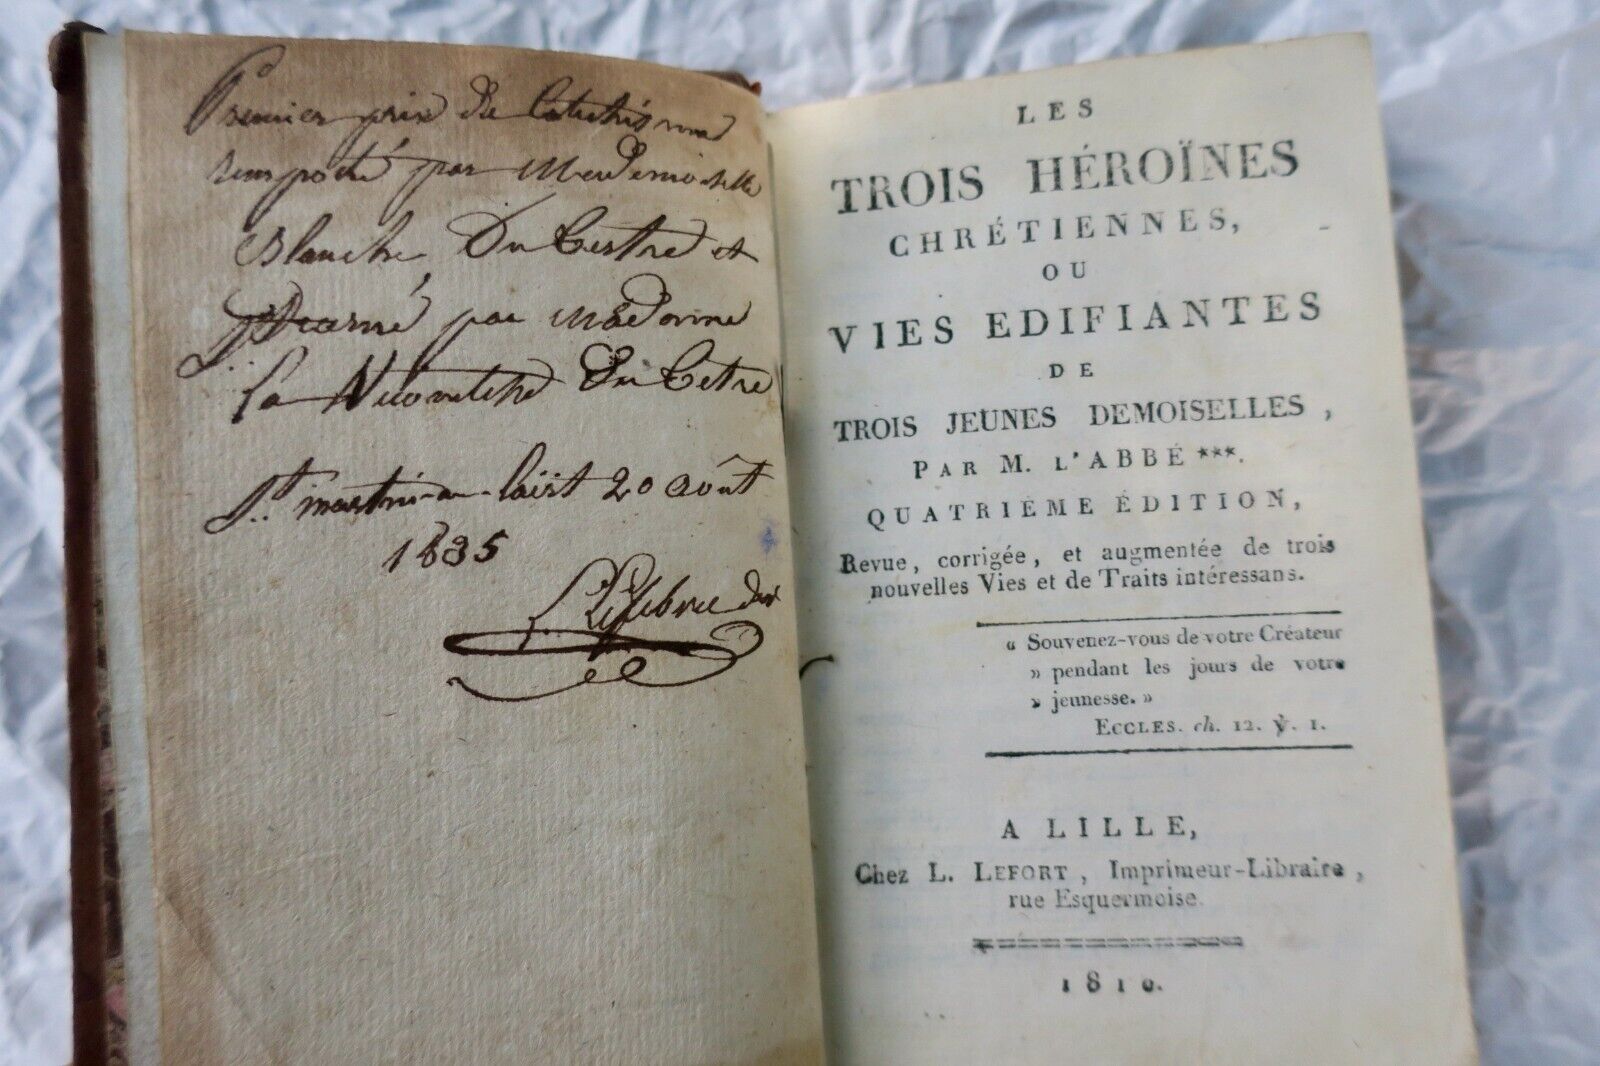 Premier prix de Catéchisme
remporté par Mademoiselle
Blanche Du Tertre et
Donné par Madame
la Vicomtesse Du Tertre
St martin-au-laert 20 août
1835
Lefebvre
LES
TROIS HÉROÏNES
CHRÉTIENNES,
OU
VIES EDIFIANTES
DE
TROIS JEUNES DEMOISELLES,
PAR M. L'ABBÉ ***.
QUATRIEME ÉDITION,
Revue, corrigée, et augmentée de trois
nouvelles Vies et de Traits intéressans.
« Souvenez-vous de votre Créateur
» pendant les jours de votre
» jeunesse. »
ECCLES. ch. 12. ℣. 1.
A LILLE,
Chez L. LEFORT, Imprimeur-Libraire,
rue Esquermoise.
1810.